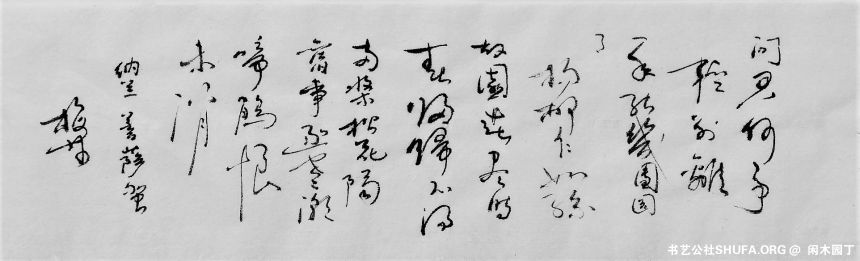 问君何事
轻别離
一年能幾團圓
月
杨柳乍如絲
故園春尽时
春归歸不得
两桨松花隔
舊事逐寒潮
啼鹃恨
未消
纳兰 菩薩蛮
书艺公社SHUFA.ORG @ 闲木园丁